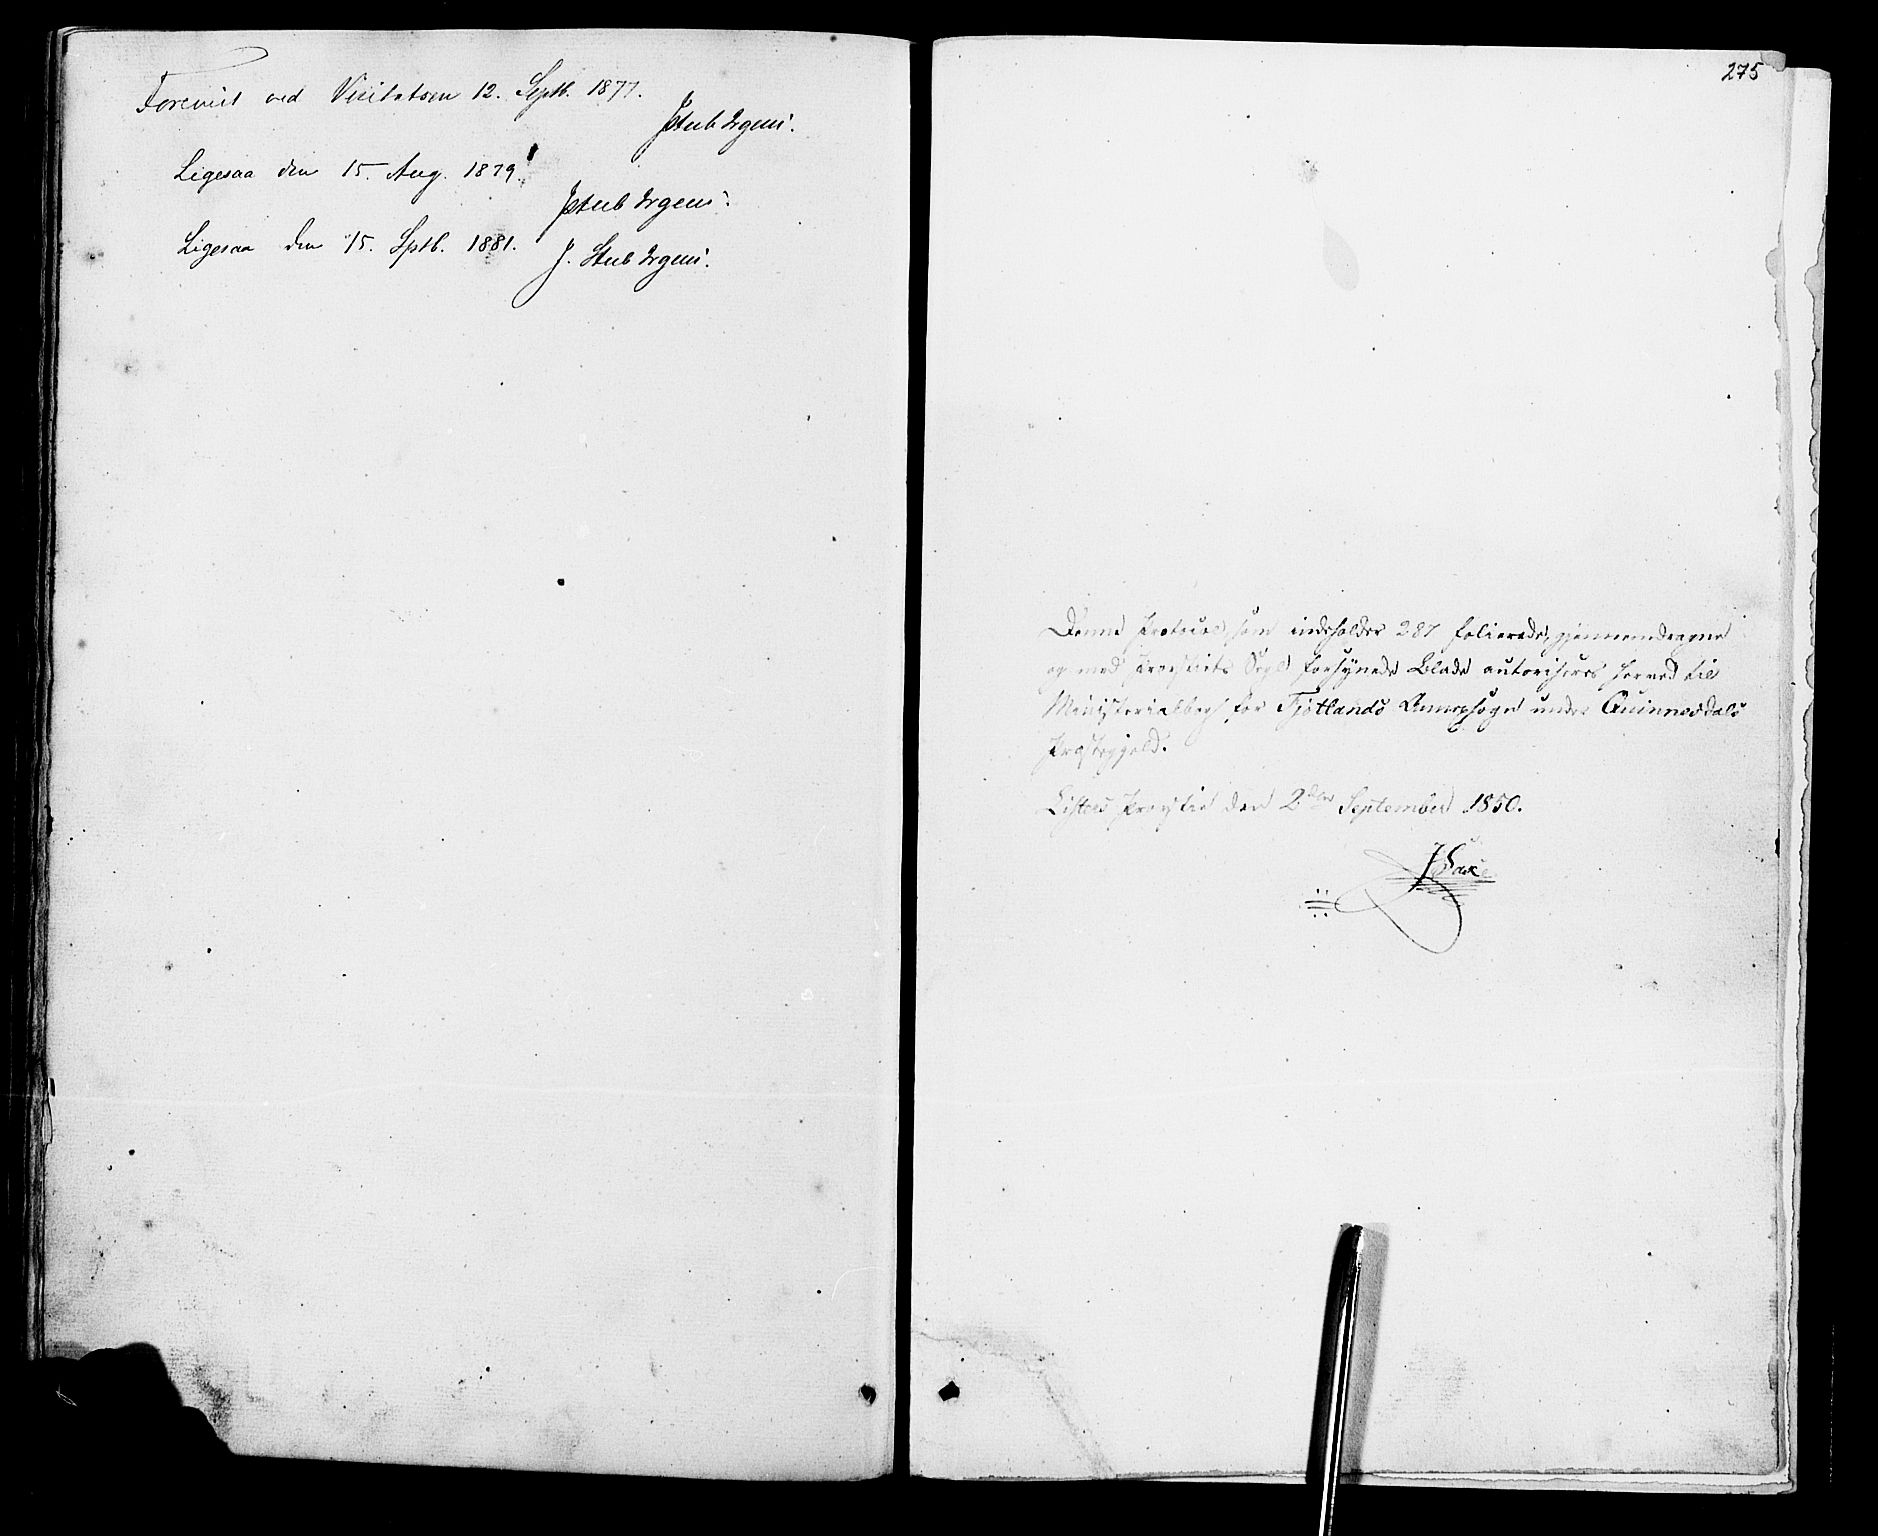 Forevist ved Visitatsen 12. Septb. 1877.
JStub Irgens.
Ligesaa den 15. Aug. 1879.
JStub Irgens.
Ligesaa den 15. Sptb. 1881.
J. Stub Irgens.
275
Denne Protocol, som indeholder 287 folierede, gjennemdragne
og med Provstiets Segl forsynede Blade autoriseres herved til
Ministerialbog for Fjotlands Annexsogn under Quinnesdals
Præstegjeld.
Listers Provstie den 2den September 1850.